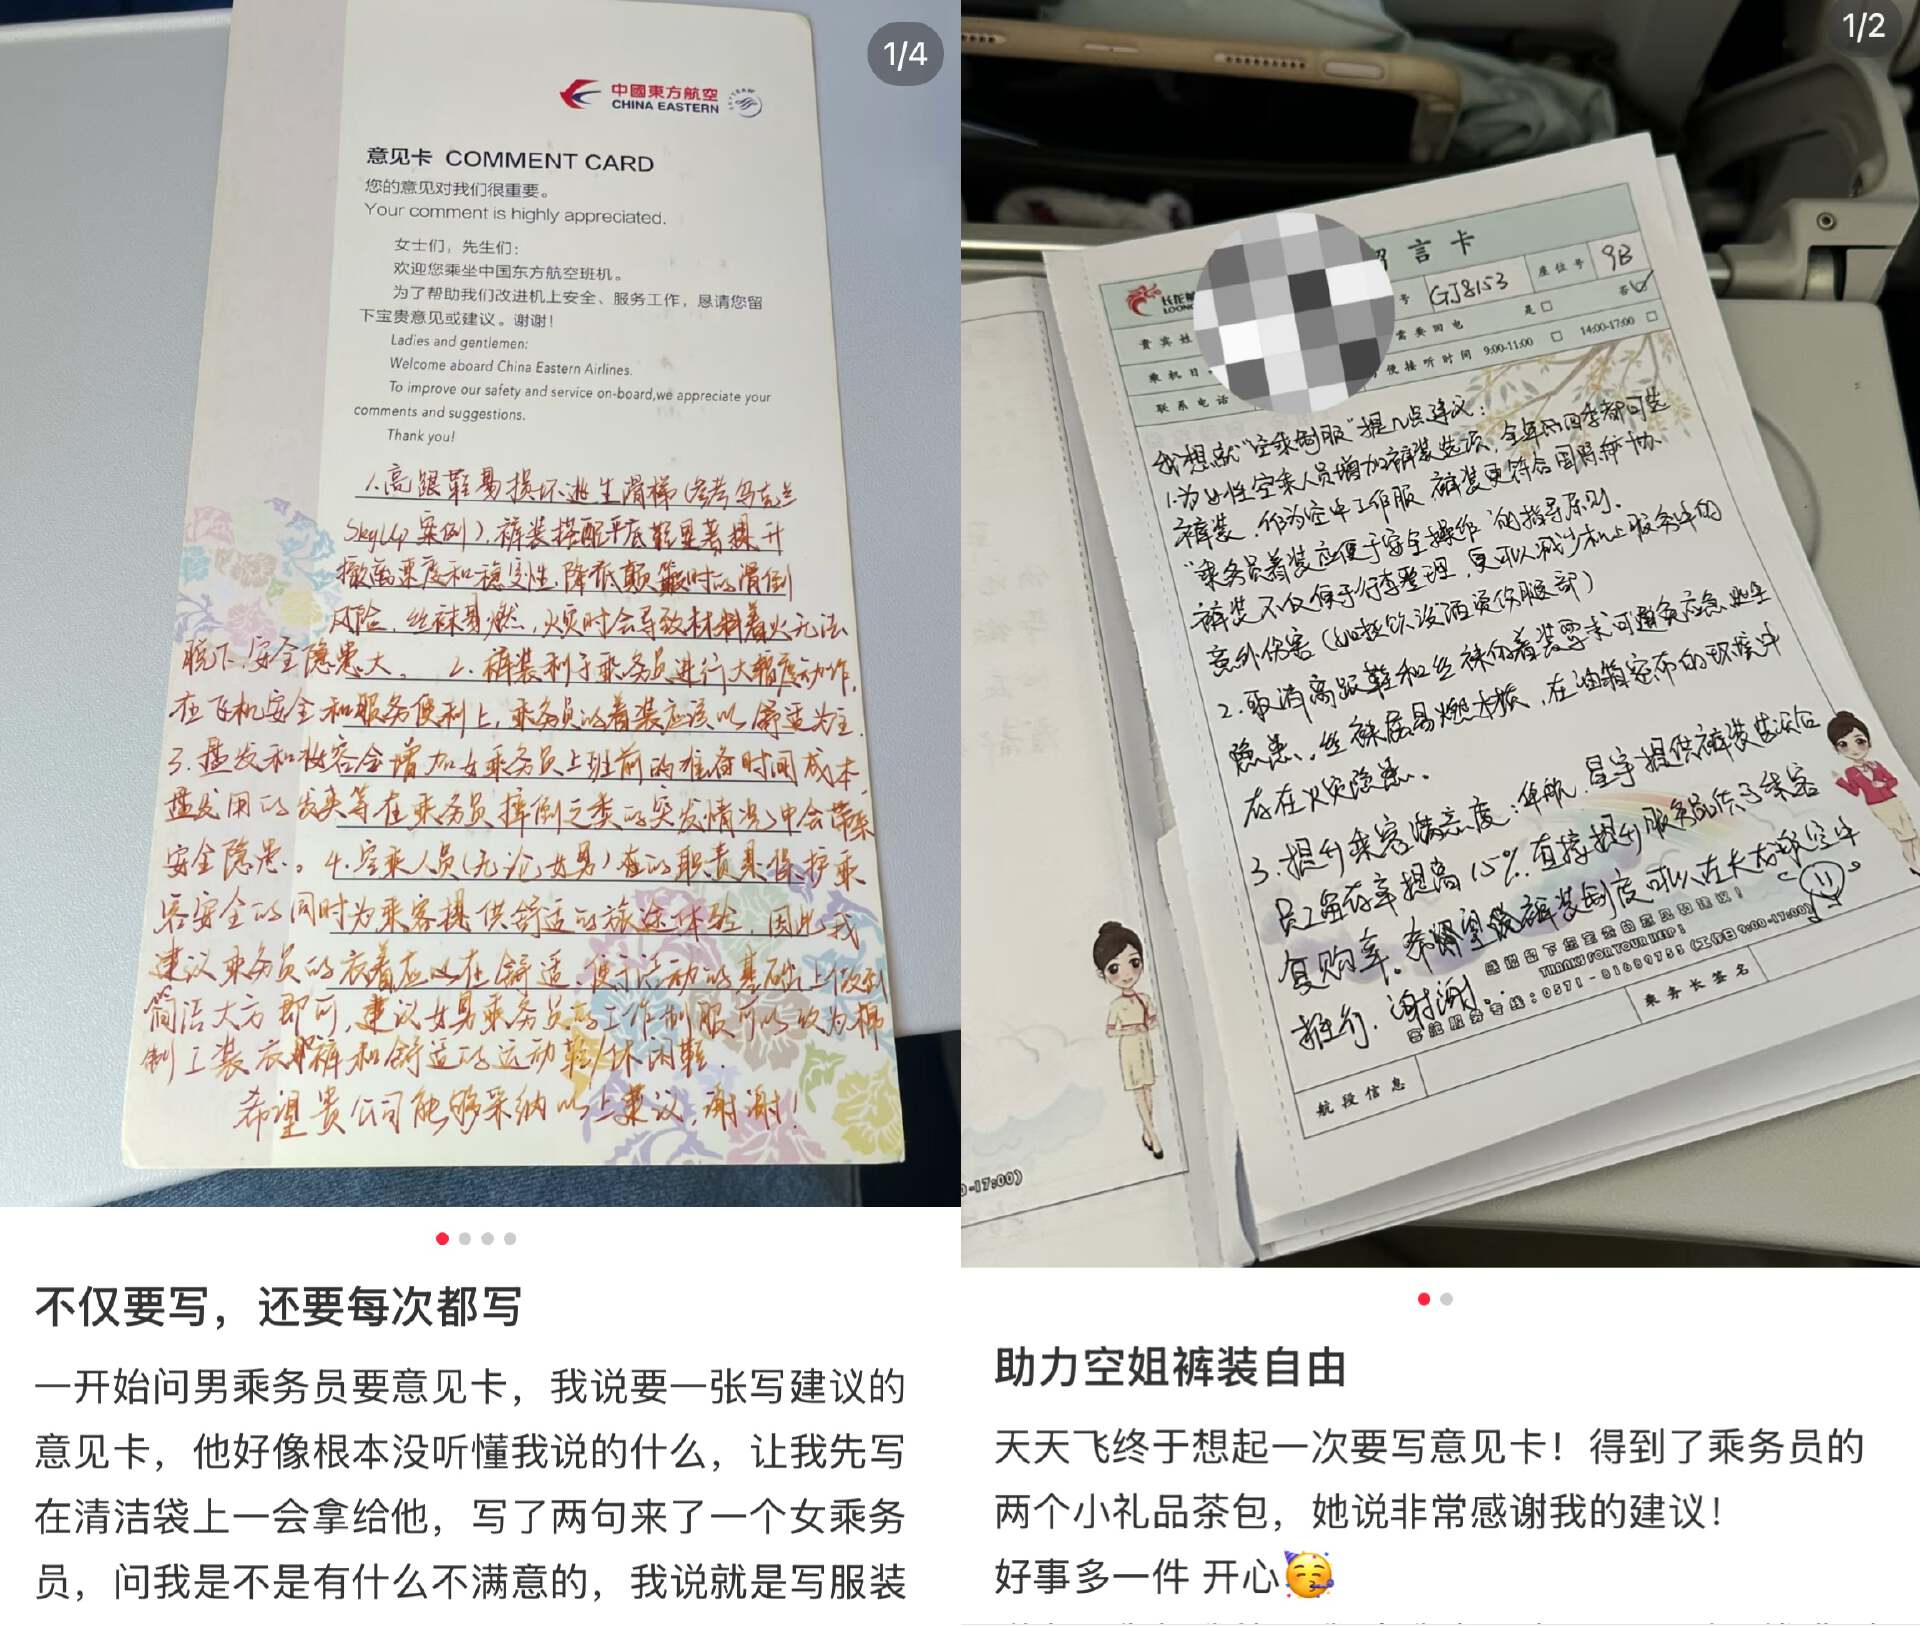 1/4
中國東方航空
CHINA EASTERN
SKYTEAM
意见卡 COMMENT CARD
您的意见对我们很重要。
Your comment is highly appreciated.
女士们，先生们：
欢迎您乘坐中国东方航空班机。
为了帮助我们改进机上安全、服务工作，恳请您留
下宝贵意见或建议。谢谢！
Ladies and gentlemen:
Welcome aboard China Eastern Airlines.
To improve our safety and service on-board,we appreciate your
comments and suggestions.
Thank you!
1.高跟鞋易损坏逃生滑梯(参考乌克兰
SkyUp案例),裤装搭配平底鞋显著提升
撤离速度和稳定性,降低颠簸时的滑倒
风险,丝袜易燃,火灾时会导致材料着火无法
脱下,安全隐患大。2.裤装利于乘务员进行大幅度动作,
在飞机安全和服务便利上,乘务员的着装应该以舒适为主.
3.盘发和妆容会增加女乘务员上班前的准备时间成本,
盘发用的发夹等在乘务员摔倒之类的突发情况中会带来
安全隐患。4.空乘人员(无论女男)在的职责是保护乘
客安全的同时为乘客提供舒适的旅途体验,因此我
建议乘务员的衣着应以在舒适、便于活动的基础上做到
简洁大方即可,建议女男乘务员的工作制服可以改为棉
制工装衣裤和舒适的运动鞋/休闲鞋.
希望贵公司能够采纳以上建议,谢谢!
不仅要写，还要每次都写
一开始问男乘务员要意见卡，我说要一张写建议的
意见卡，他好像根本没听懂我说的什么，让我先写
在清洁袋上一会拿给他，写了两句来了一个女乘务
员，问我是不是有什么不满意的，我说就是写服装
1/2
言卡
长龙
LOONG
号 GJ8153 座位号 9B
贵宾姓 需要回电 是 否
乘机日 便接听时间 9:00-11:00 14:00-17:00
联系电话
我想就"空乘制服"提几点建议:
1.为女性空乘人员增加裤装选项,全年四季都可选
裤装,作为空中工作服 裤装更符合国际民协
"乘务员着装应便于安全操作"的指导原则.
裤装不仅便于行李整理,更可以减少机上服务中的
意外伤害(如热饮泼洒烫伤腿部)
2.取消高跟鞋和丝袜的着装要求可避免应急逃生
隐患.丝袜属易燃材质,在油箱密布的环境中
存在火灾隐患.
3.提升乘客满意度:华航、星宇提供裤装选项后
员工留存率提高15%.直接提升服务品质与乘客
复购率.希望裤装制度可以在长龙航空中
推行.谢谢.
感谢留下您宝贵的意见和建议！
THANKS FOR YOUR HELP!
客舱服务专线：0571-81689753（工作日9:00-17:00）
乘务长签名
航段信息
0-17:00)
助力空姐裤装自由
天天飞终于想起一次要写意见卡！得到了乘务员的
两个小礼品茶包，她说非常感谢我的建议！
好事多一件 开心🥳